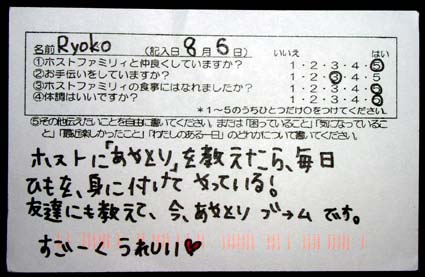 名前 Ryoko (記入日 8月5日) いいえ はい
①ホストファミリィと仲良くしていますか? 1・2・3・4・5
②お手伝いをしていますか? 1・2・3・4・5
③ホストファミリィの食事にはなれましたか? 1・2・3・4・5
④体調はいいですか? 1・2・3・4・5
*1~5のうちひとつだけ○をつけてください。
⑤その他伝えたいことを自由に書いてください。または「困っていること」「気になっているこ
と」「最近楽しかったこと」「わたしのある一日」のどれかについて書いてください。
ホストに「あやとり」を教えたら、毎日
ひもを、身に付けて やっている!
友達にも教えて、今、あやとり ブーム です。
すごーく うれしい♥